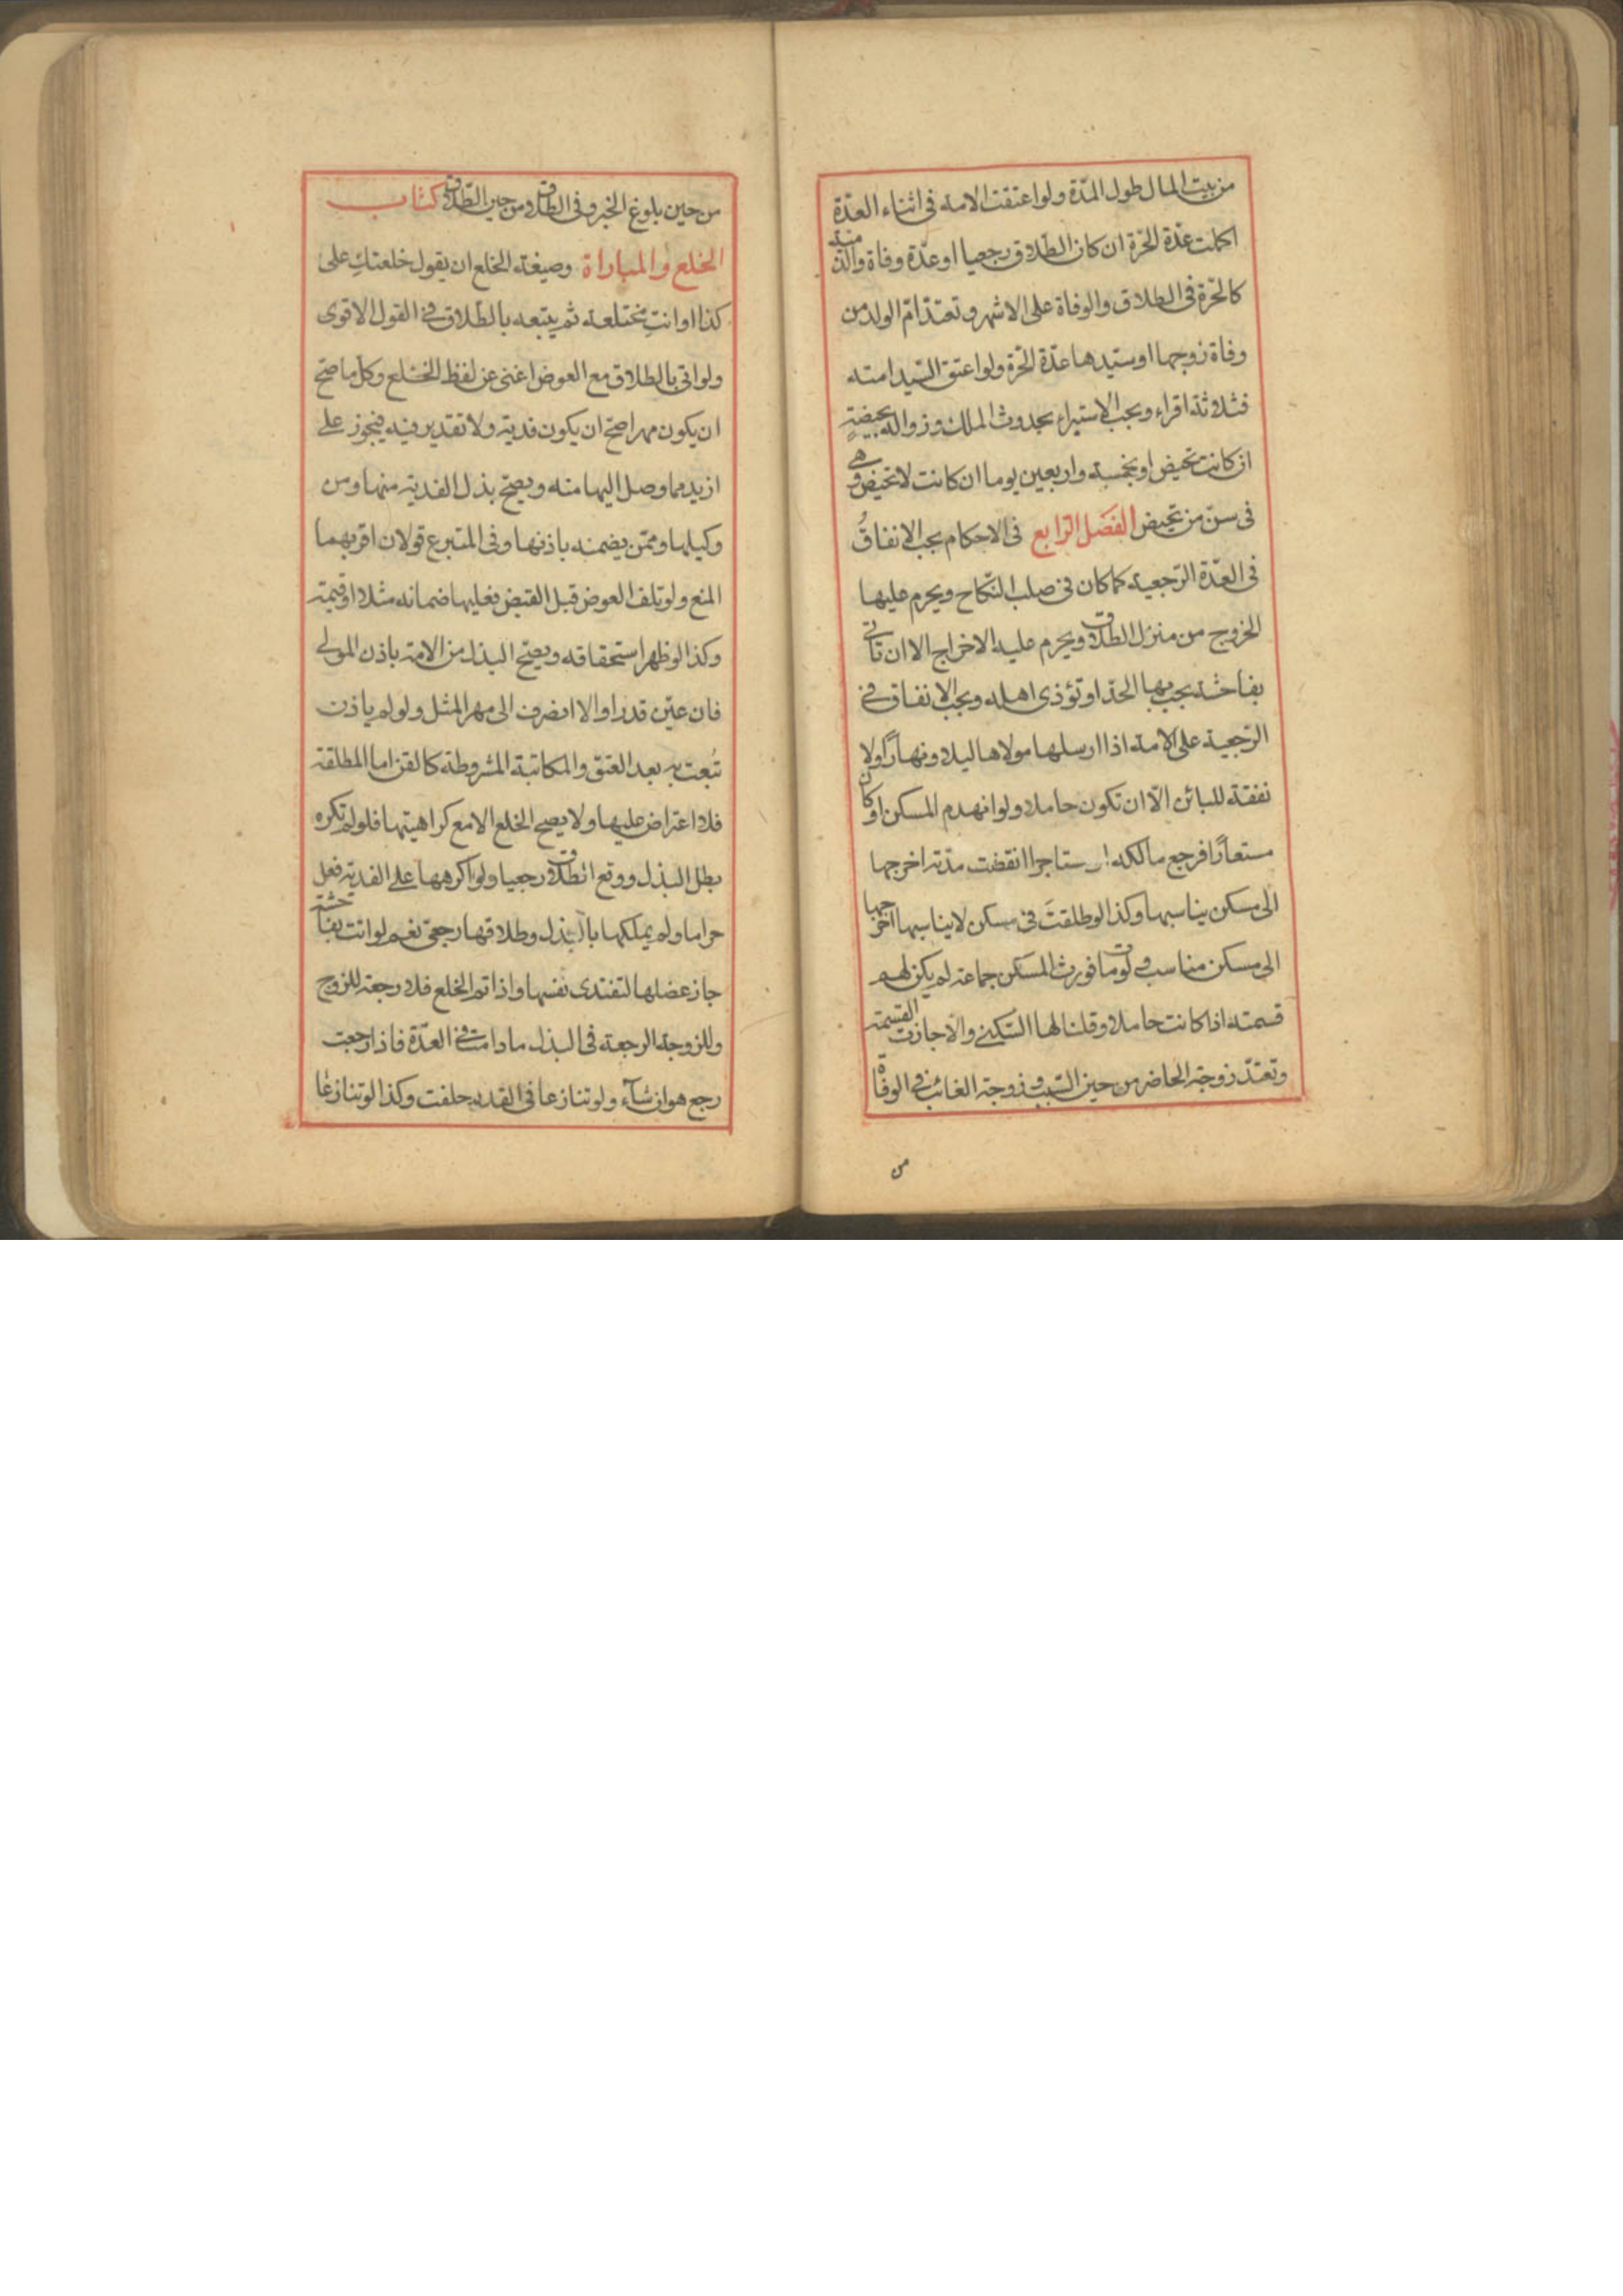 من بيت المال طول المدّة ولو اعتقت الامة فى اثناء العدّة
اكملت عدّة الحرّة ان كان الطّلاق رجعيا او عدّة وفاة والذمية
كالحرّة فى الطلاق والوفاة على الاشهر وتعتدّ امّ الولد من
وفاة زوجها او سيّدها عدّة الحرّة ولو اعتق السّيد امته
فثلاثة اقراء ويجب الاستبراء بحدوث الملك وزواله بحيضةٍ
ان كانت تحيض او بخمسة واربعين يوما ان كانت لا تحيض وهى
فى سنّ من تحيض الفصَل الرّابع فى الاحكام يجب الانفاقُ
فى العدّة الرّجعية كما كان فى صلب النّكاح ويحرم عليها
الخروج من منزل الطلاق ويحرم عليه الاخراج الا ان تاتى
بفاحشة يجب بها الحدّ او تؤذى اهله ويجب الانفاق فى
الرّجعية على الامة اذا ارسلها مولاها ليلا ونهارًا ولا
نفقة للبائن الّا ان تكون حاملا ولو انهدم المسكن او كان
مستعارًا فرجع مالكه او مستاجرا انقضت مدّته اخرجها
الى مسكن يناسبها وكذا لو طلقت فى مسكن لا يناسبها اخرجها
الى مسكن مناسب ولو مات فورث المسكن جماعة لم يكن لهم
قسمته اذا كانت حاملا وقلنا لها السّكنى والّا جازت القسمة
وتعتدّ زوجة الحاضر من حين السّبب وزوجة الغائب فى الوفاة
من
من حين بلوغ الخبر وفى الطلاق من حين الطّلاق كتاب
الخلع والمباراة وصيغة الخلع ان يقول خلعتكِ على
كذا او انتِ مختلعة ثم يتبعه بالطّلاق فى القول الاقوى
ولو اتى بالطلاق مع العوض اغنى عن لفظ الخلع وكل ما صحّ
ان يكون مهرا صحّ ان يكون فدية ولا تقدير فيه فيجوز على
ازيد مما وصل اليها منه ويصحّ بذل الفدية منها ومن
وكيلها وممّن يضمنه باذنها وفى المتبرع قولان اقربهما
المنع ولو تلف العوض قبل القبض فعليها ضمانه مثلا او قيمة
وكذا لو ظهر استحقاقه ويصحّ البذل من الامة باذن المولى
فان عيّن قدرا والا انصرف الى مهر المثل ولو لم ياذن
تُبعت به بعد العتق والمكاتبة المشروطة كالقن اما المطلقة
فلا اعتراض عليها ولا يصح الخلع الا مع كراهيتها فلو لم تكره
بطل البذل ووقع الطلاق رجعيا ولو اكرهها على الفدية فعل
حراما ولم يملكها بالبذل وطلاقها رجعىّ نعم لو اتت بفاحشة
جاز عضلها لتفتدى نفسها واذا تم الخلع فلا رجعة للزوج
وللزوجة الرجعة فى البذل ما دامت فى العدّة فاذا رجعت
رجع هو ان شآء ولو تنازعا فى القدر حلفت وكذا لو تنازعا